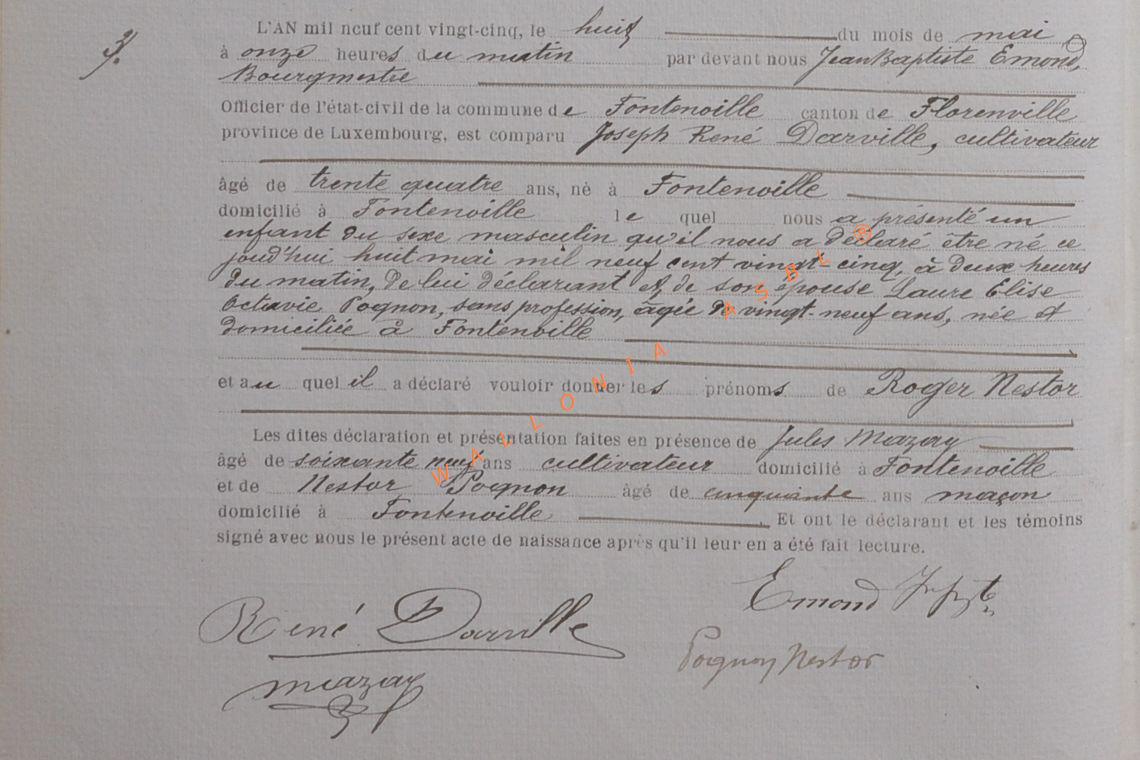 3.
L'AN mil neuf cent vingt-cinq, le huit du mois de mai,
à onze heures du matin par devant nous Jean Baptiste Emond,
Bourgmestre
Officier de l'état-civil de la commune de Fontenoille canton de Florenville
province de Luxembourg, est comparu Joseph René Darville, cultivateur
âgé de trente quatre ans, né à Fontenoille
domicilié à Fontenoille le quel nous a présenté un
enfant du sexe masculin qu'il nous a déclaré être né ce
jourd'hui huit mai mil neuf cent vingt-cinq, à deux heures
du matin, de lui déclarant et de son épouse Laure Elise
Octavie Pognon, sans profession, âgée de vingt-neuf ans, née et
domiciliée à Fontenoille
et au quel il a déclaré vouloir donner les prénoms de Roger Nestor
Les dites déclaration et présentation faites en présence de Jules Mazay
âgé de soixante neuf ans cultivateur domicilié à Fontenoille
et de Nestor Pognon âgé de cinquante ans maçon
domicilié à Fontenoille Et ont le déclarant et les témoins
signé avec nous le présent acte de naissance après qu'il leur en a été fait lecture.
Emond
René Darville
Pognon Nestor
Mazay
WALLONIA ASBL